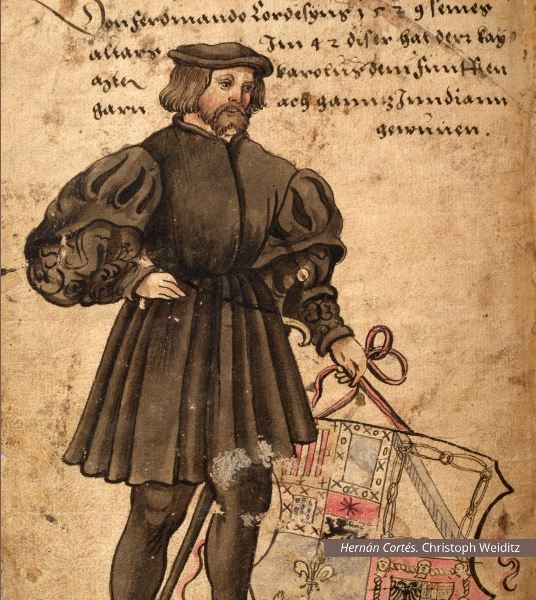 Don ferdinando Cordesyus 1529 seines
alltars Im 42 diser hat der kay
karolus dem funfften
garn gannz Inndiann
gewunen.
Hernán Cortés. Christoph Weiditz